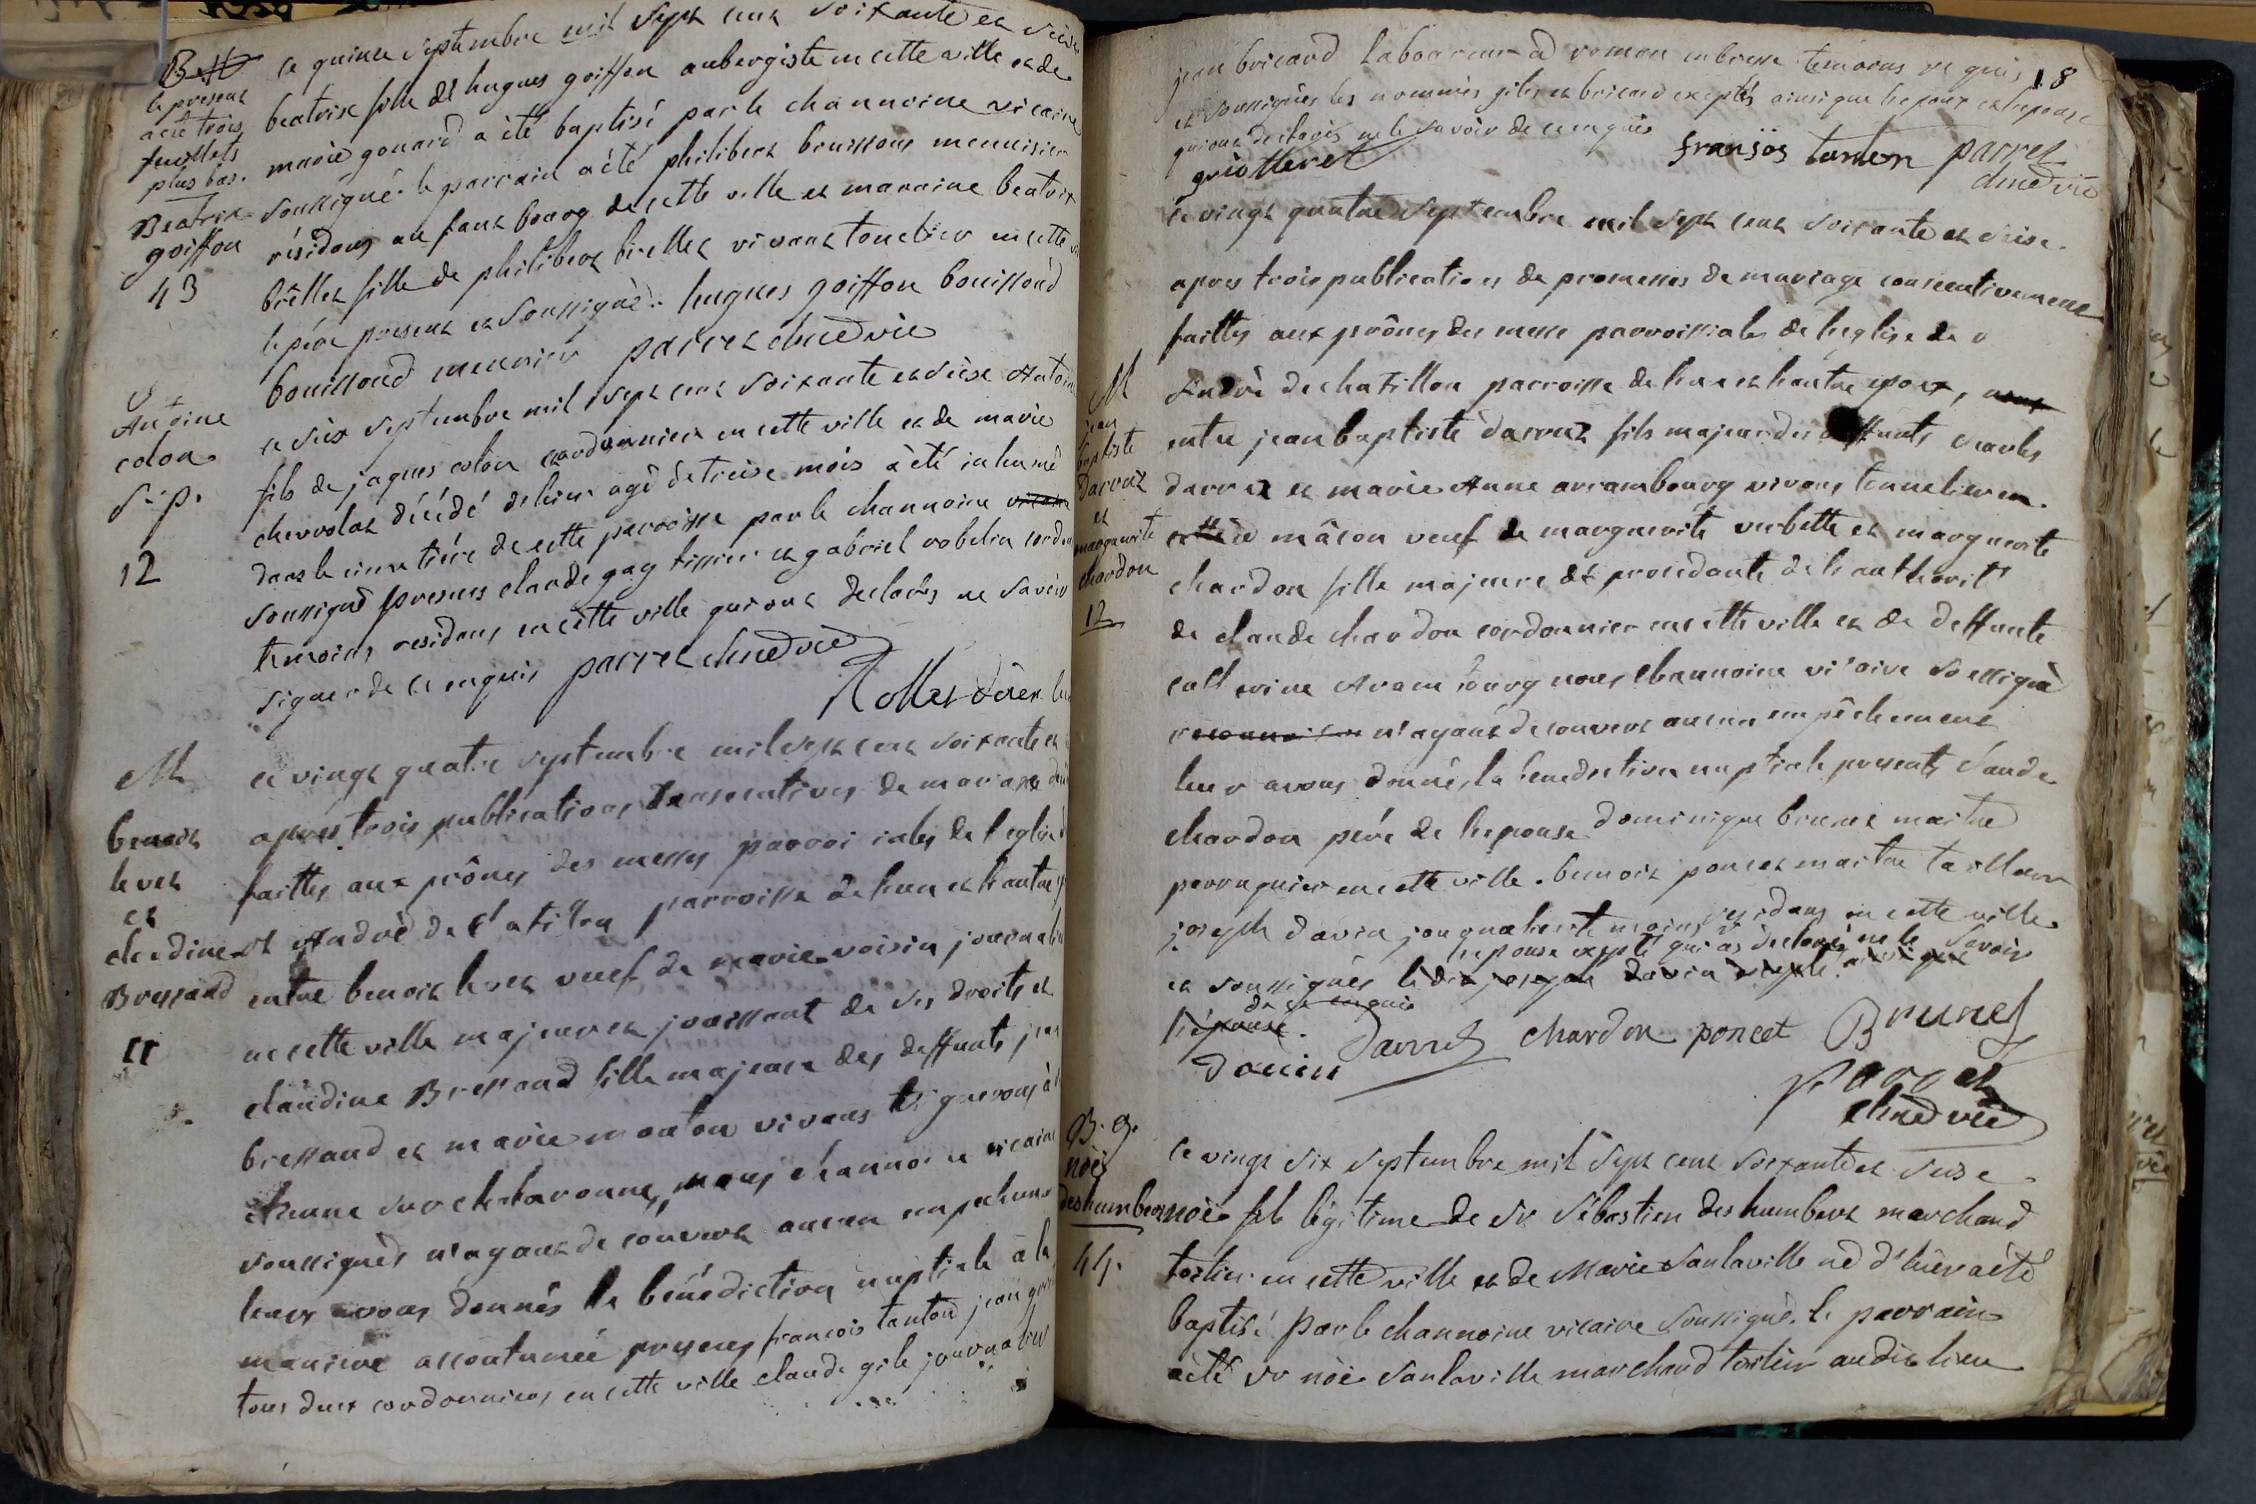 B
ce quinze septembre mil sept cent soixante et seize
le present
acte trois
feuillets
plus bas.
Beatrix
goiffon
43
beatrix fille de hugues goiffon aubergiste en cette ville et de
marie gonard a été baptisé par le channoine vicaire
soussigné. le parrain a été philibert bouissoud menuisier
résidans au faux bourg de cette ville et maraine beatrix
brêllet fille de philibert brellet vivant tonelier en cette
le pére present et soussigné. hugues goiffon bouissoud
bouissoud menusier parret chne vic
Antoine
colon
s. p.
12
ce seize septembre mil sept cent soixante et seize Antoine
fils de jaques colon cordonnier en cette ville et de marie
chervolat décédé d'hier agé de treize mois à été inhumé
dans le cimetiére de cette paroisse par le channoine vicaire
soussigné presens claude gay tissier et gabriel robelin cordon
temoins residens en cette ville qui ont declarés ne savoir
signer de ce enquis parret chne vic
M
benoit
levet
et
claudine
Bressand
11
ce vingt quatre septembre mil sept cent soixante et
aprés trois publications consecutives de mariage
faittes aux prônes des messes parroissiales de l'eglise
st André de chatillon parroisse de l'un et l'autre
entre benoit levet veuf de marie voisin journalier
en cette ville majeur et jouissant de ses droits et
claudine Bressand fille majeure des deffunts jean
bressand et marie monton vivans vignerons à
channe sur chalaronne, nous channoine vicaire
soussignés n'ayant découvert aucun empechement
leurs avons donnés la bénédiction nuptiale à la
maniere accoutumée presens francois tanton jean
tous deux cordonniers en cette ville claude gile journalier
18
jean bricaud laboureur à roman en bresse temoins requis
et soussignés les nommés giles et bricaud exceptés ainsi que l'epoux et l'epouse
qui ont declarés ne le savoir de ce enquis
griotteret fransois tanton parret
chne vic
M
jean
baptiste
Darret
et
marguerite
chardon
12
ce vingt quatre septembre mil sept cent soixante et seize.
apres trois publications de promesses de mariage consecutivement
faittes aux prônes des messes parroissiales de l'eglise de s
André de chatillon parroisse de l'un et l'autre epoux,
entre jean baptiste darret fils majeur des deffunts charles
darret et marie Anne arrambourg vivans tonnelier en
mâcon veuf de marguerite verbette et marguerite
chardon fille majeure et procedante de l'authorité
de claude chardon cordonnier en cette ville et de deffunte
catherine Arambourg nous channoine vicaire soussigné
n'ayant decouvert aucun empêchement
leur avons donnés la benediction nuptiale presents claude
chardon pére de l'epouse dominique brunet maitre
perruquier en cette ville. benoit poncet maitre tailleur
joseph davin jouqualier temoins residans en cette ville
l'epouse exepté qui as declaré ne le savoir
et soussignés ledit joseph davin exepté ainsi que
de ce enquis
l'épouse.
Darret chardon poncet Brunet
davin
parret
chne vic
B. g.
noé
deshumbert
44.
ce vingt six septembre mil sept cent soixante et seize.
noé fils légitime de sr sébastien deshumbert marchand
toilier en cette ville et de Marie sanlaville né d'hier a été
baptisé par le channoine vicaire soussigné. le parrain
a été sr noé sanlaville marchand toilier audit lieu